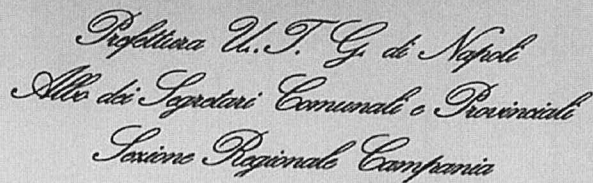 Prefettura U.T.G. di Napoli
Albo dei Segretari Comunali e Provinciali
Sezione Regionale Campania